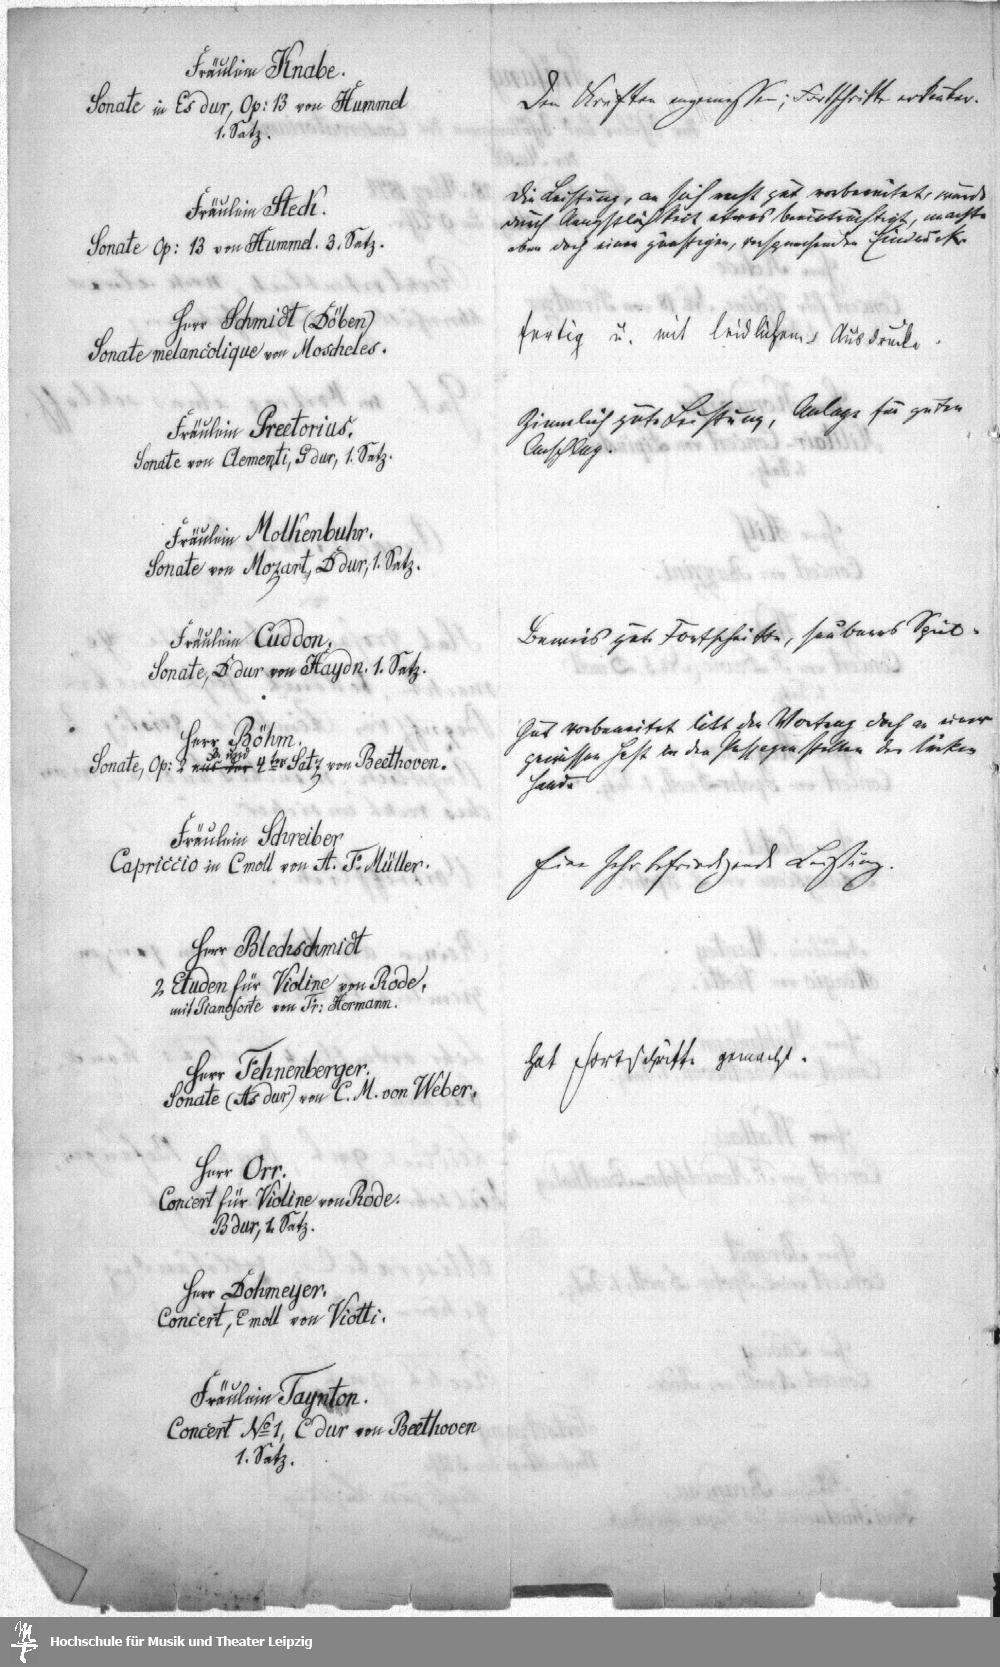 Fräulein Knabe.
Sonate in Es dur, Op: 13 von Hummel
1. Satz.
Den Kräften angemessen; Fortschritte erkenbar.
Fräulein Steck.
Sonate Op: 13 von Hummel. 3. Satz.
Die Leistung, an sich recht gut vorbereitet, wurde
durch Aengstlichkeit etwas beeinträchtigt, machte
aber doch einen günstigen, versprechenden Eindruck.
Herr Schmidt (Döben)
Sonate melancolique von Moscheles.
fertig u. mit leidlichem Ausdrucke.
Fräulein Preetorius.
Sonate von Clementi, G dur, 1. Satz.
Ziemlich gute Leistung, Anlage für guten
Anschlag.
Fräulein Molkenbuhr.
Sonate von Mozart, D dur, 1. Satz.
Fräulein Cuddon.
Sonate, D dur von Haydn. 1. Satz.
Bewies gute Fortschritte, sauberes Spiel.
Herr Böhm.
3. und
Sonate, Op: 2 aus der 4ter Satz von Beethoven.
Gut vorbereitet litt der Vortrag doch an einer
gewissen Hast in den Passagenstellen der linken
Hand.
Fräulein Schreiber
Capriccio in C moll von A. F. Müller.
Eine sehr befriedigende Leistung.
Herr Blechschmidt
2 Etuden für Violine von Rode,
mit Pianoforte von Fr: Hermann.
Herr Fehnenberger.
Sonate (As dur) von C. M. von Weber.
hat Fortschritte gemacht.
Herr Orr.
Concert für Violine von Rode.
B dur, 1. Satz.
Herr Dohmeyer.
Concert, E moll von Viotti.
Fräulein Taynton.
Concert No 1, C dur von Beethoven
1. Satz.
Hochschule für Musik und Theater Leipzig